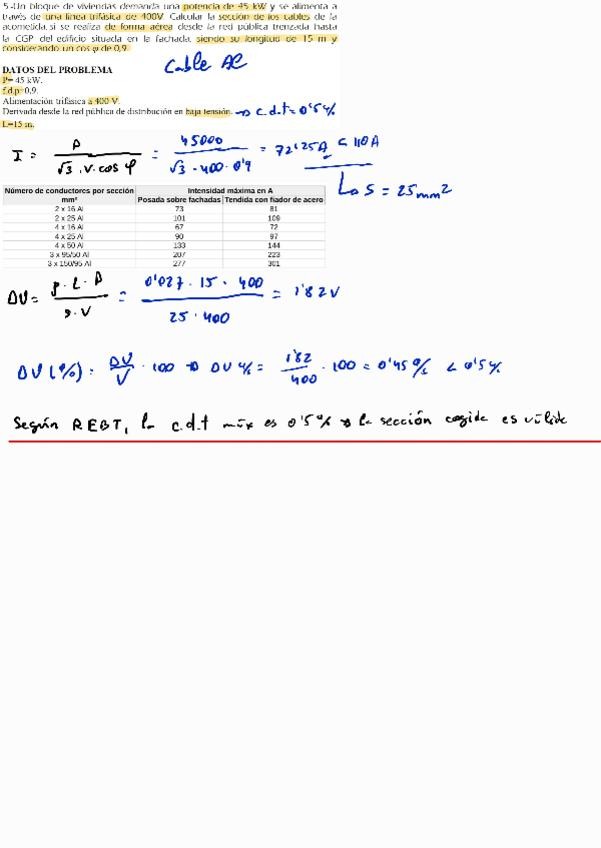 5.-Un bloque de viviendas demanda una potencia de 45 kW y se alimenta a
través de una línea trifásica de 400V. Calcular la sección de los cables de la
acometida, si se realiza de forma aérea desde la red pública trenzada hasta
la CGP del edificio situada en la fachada, siendo su longitud de 15 m y
considerando un cos φ de 0,9.
Cable Al
DATOS DEL PROBLEMA
P= 45 kW.
f.d.p=0,9.
Alimentación trifásica a 400 V.
Derivada desde la red pública de distribución en baja tensión. → c.d.t = 0'5%
L=15 m.
I = P / √3 · V · cos φ = 45000 / √3 · 400 · 0'9 = 72'25A < 110A
↳ S = 25mm²
Número de conductores por sección mm² Intensidad máxima en A
Posada sobre fachadas Tendida con fiador de acero
2 x 16 Al 73 81
2 x 25 Al 101 109
4 x 16 Al 67 72
4 x 25 Al 90 97
4 x 50 Al 133 144
3 x 95/50 Al 207 223
3 x 150/95 Al 277 301
ΔU = ρ · L · P / S · V = 0'027 · 15 · 400 / 25 · 400 = 1'82V
ΔU (%) = ΔU / V · 100 → ΔU % = 1'82 / 400 · 100 = 0'45% < 0'5%
Según REBT, la c.d.t máx es 0'5% → la sección cogida es válida